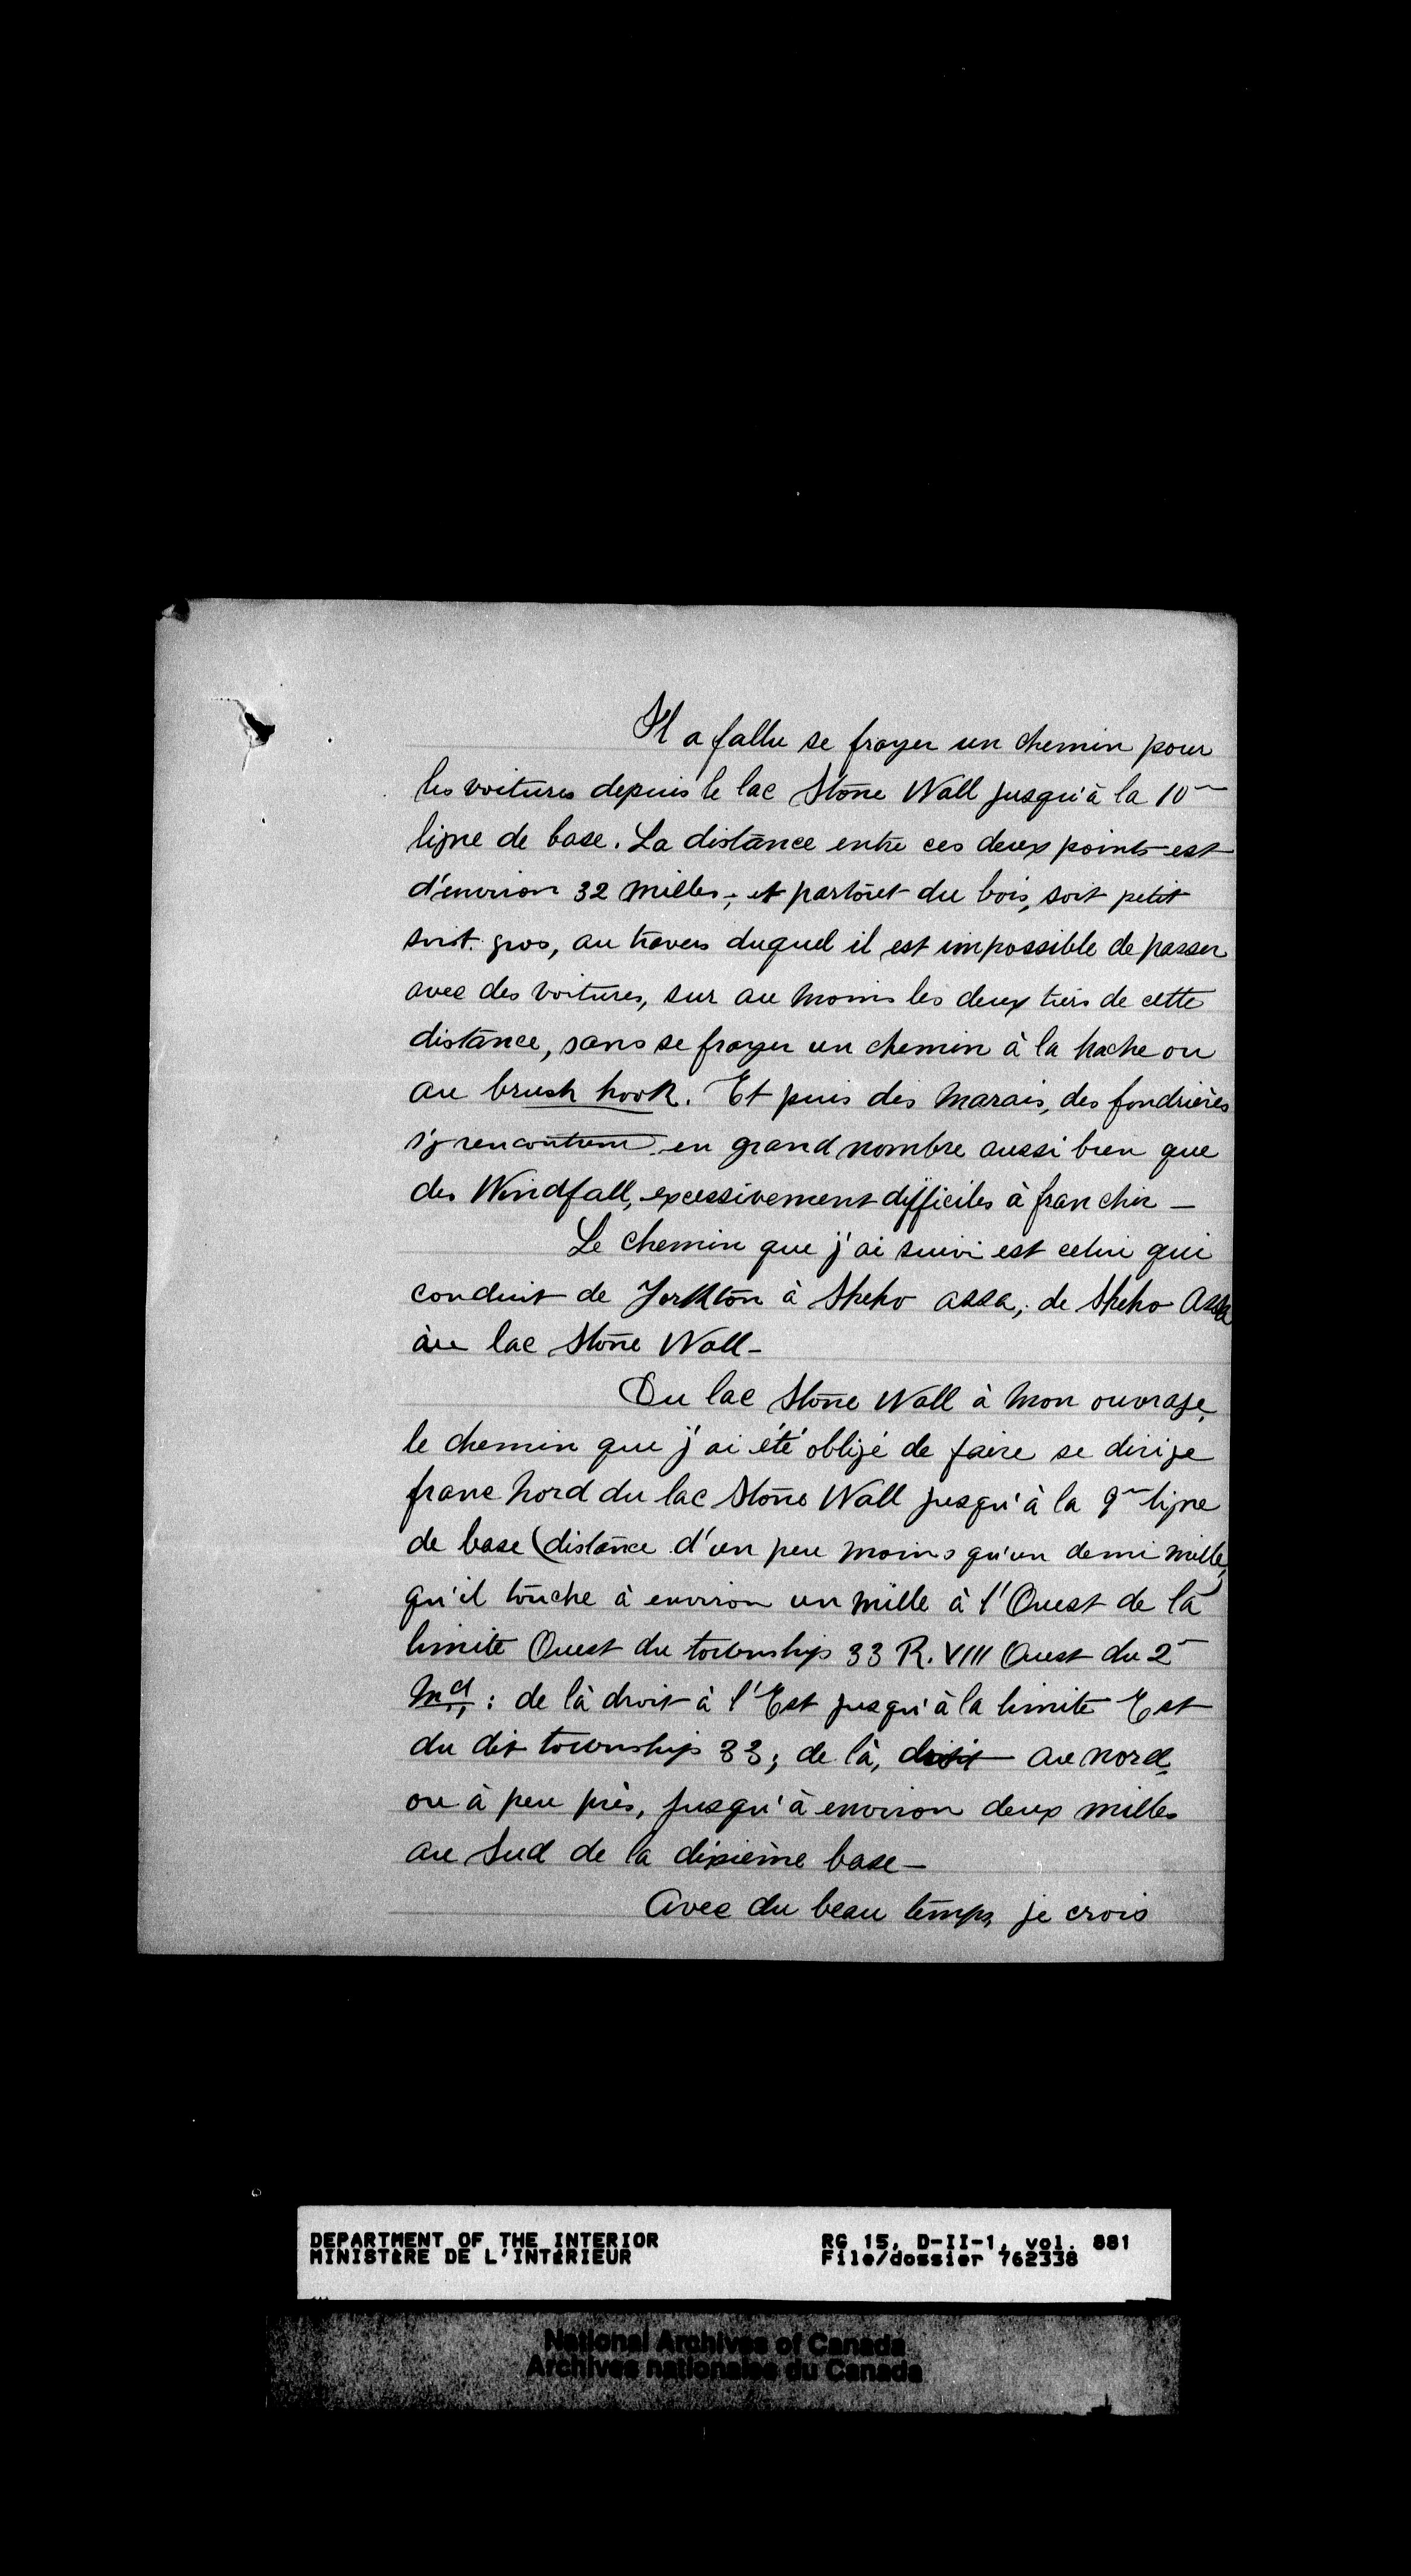 Il a fallu se frayer un chemin pour
les voitures depuis le lac Stone Wall jusqu'à la 10me
ligne de base. La distance entre ces deux points est
d'environ 32 milles; et partout du bois, soit petit
soit gros, au travers duquel il est impossible de passer
avec des voitures, sur au moins les deux tiers de cette
distance, sans se frayer un chemin à la hache ou
au brush hook. Et puis des marais, des fondrières
s'y rencontrent en grand nombre aussi bien que
des Windfall, excessivement difficiles à franchir —
Le chemin que j'ai suivi est celui qui
conduit de Yorkton à Sheho assa, de Sheho Assa
au lac Stone Wall —
Du lac Stone Wall à mon ouvrage,
le chemin que j'ai été obligé de faire se dirige
franc Nord du lac Stone Wall jusqu'à la 9me ligne
de base (distance d'un peu moins qu'un demi mille)
qu'il touche à environ un mille à l'Ouest de la
limite Ouest du township 33 R. VIII Ouest du 2e
Md : de là droit à l'Est jusqu'à la limite Est
du dit township 33; de là, droit au nord
ou à peu près, jusqu'à environ deux milles
au Sud de la dixième base —
Avec du beau temps, je crois
DEPARTMENT OF THE INTERIOR RG 15, D-II-1, vol. 881
MINISTÈRE DE L'INTÉRIEUR File/dossier 762338
National Archives of Canada
Archives nationales du Canada